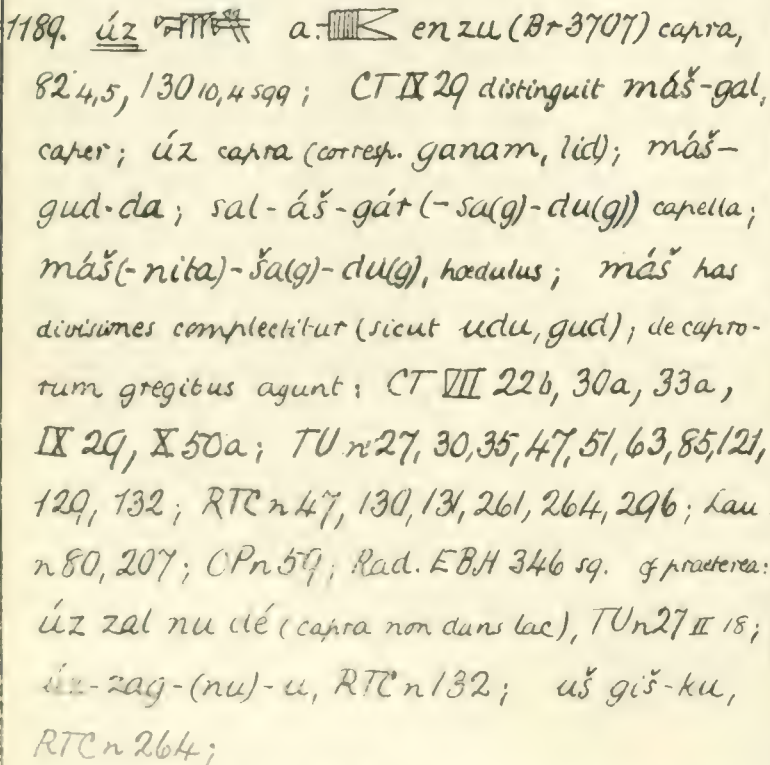 1189. úz a. en zu (Br 3707) capra,
82 4,5, 130 10,4 sqq ; CT IX 29 distinguit máš-gal,
caper ; úz capra (corresp. ganam, lid) ; máš-
gud-da ; sal-áš-gár (-sa(g)-du(g)) capella ;
máš(-nita)-ša(g)-du(g), hœdulus ; máš has
divisiones complectitur (sicut udu, gud) ; de capro-
rum gregibus agunt : CT VIII 22b, 30a, 33a,
IX 29, X 50a ; TU n 27, 30, 35, 47, 51, 63, 85, 121,
129, 132 ; RTC n 47, 130, 131, 261, 264, 296 ; Lau
n 80, 207 ; OP n 59 ; Rad. EBH 346 sq. cf praeterea :
úz zal nu dé (capra non dans lac), TU n 27 II 18 ;
úz-zag-(nu)-u, RTC n 132 ; uš giš-ku,
RTC n 264 ;